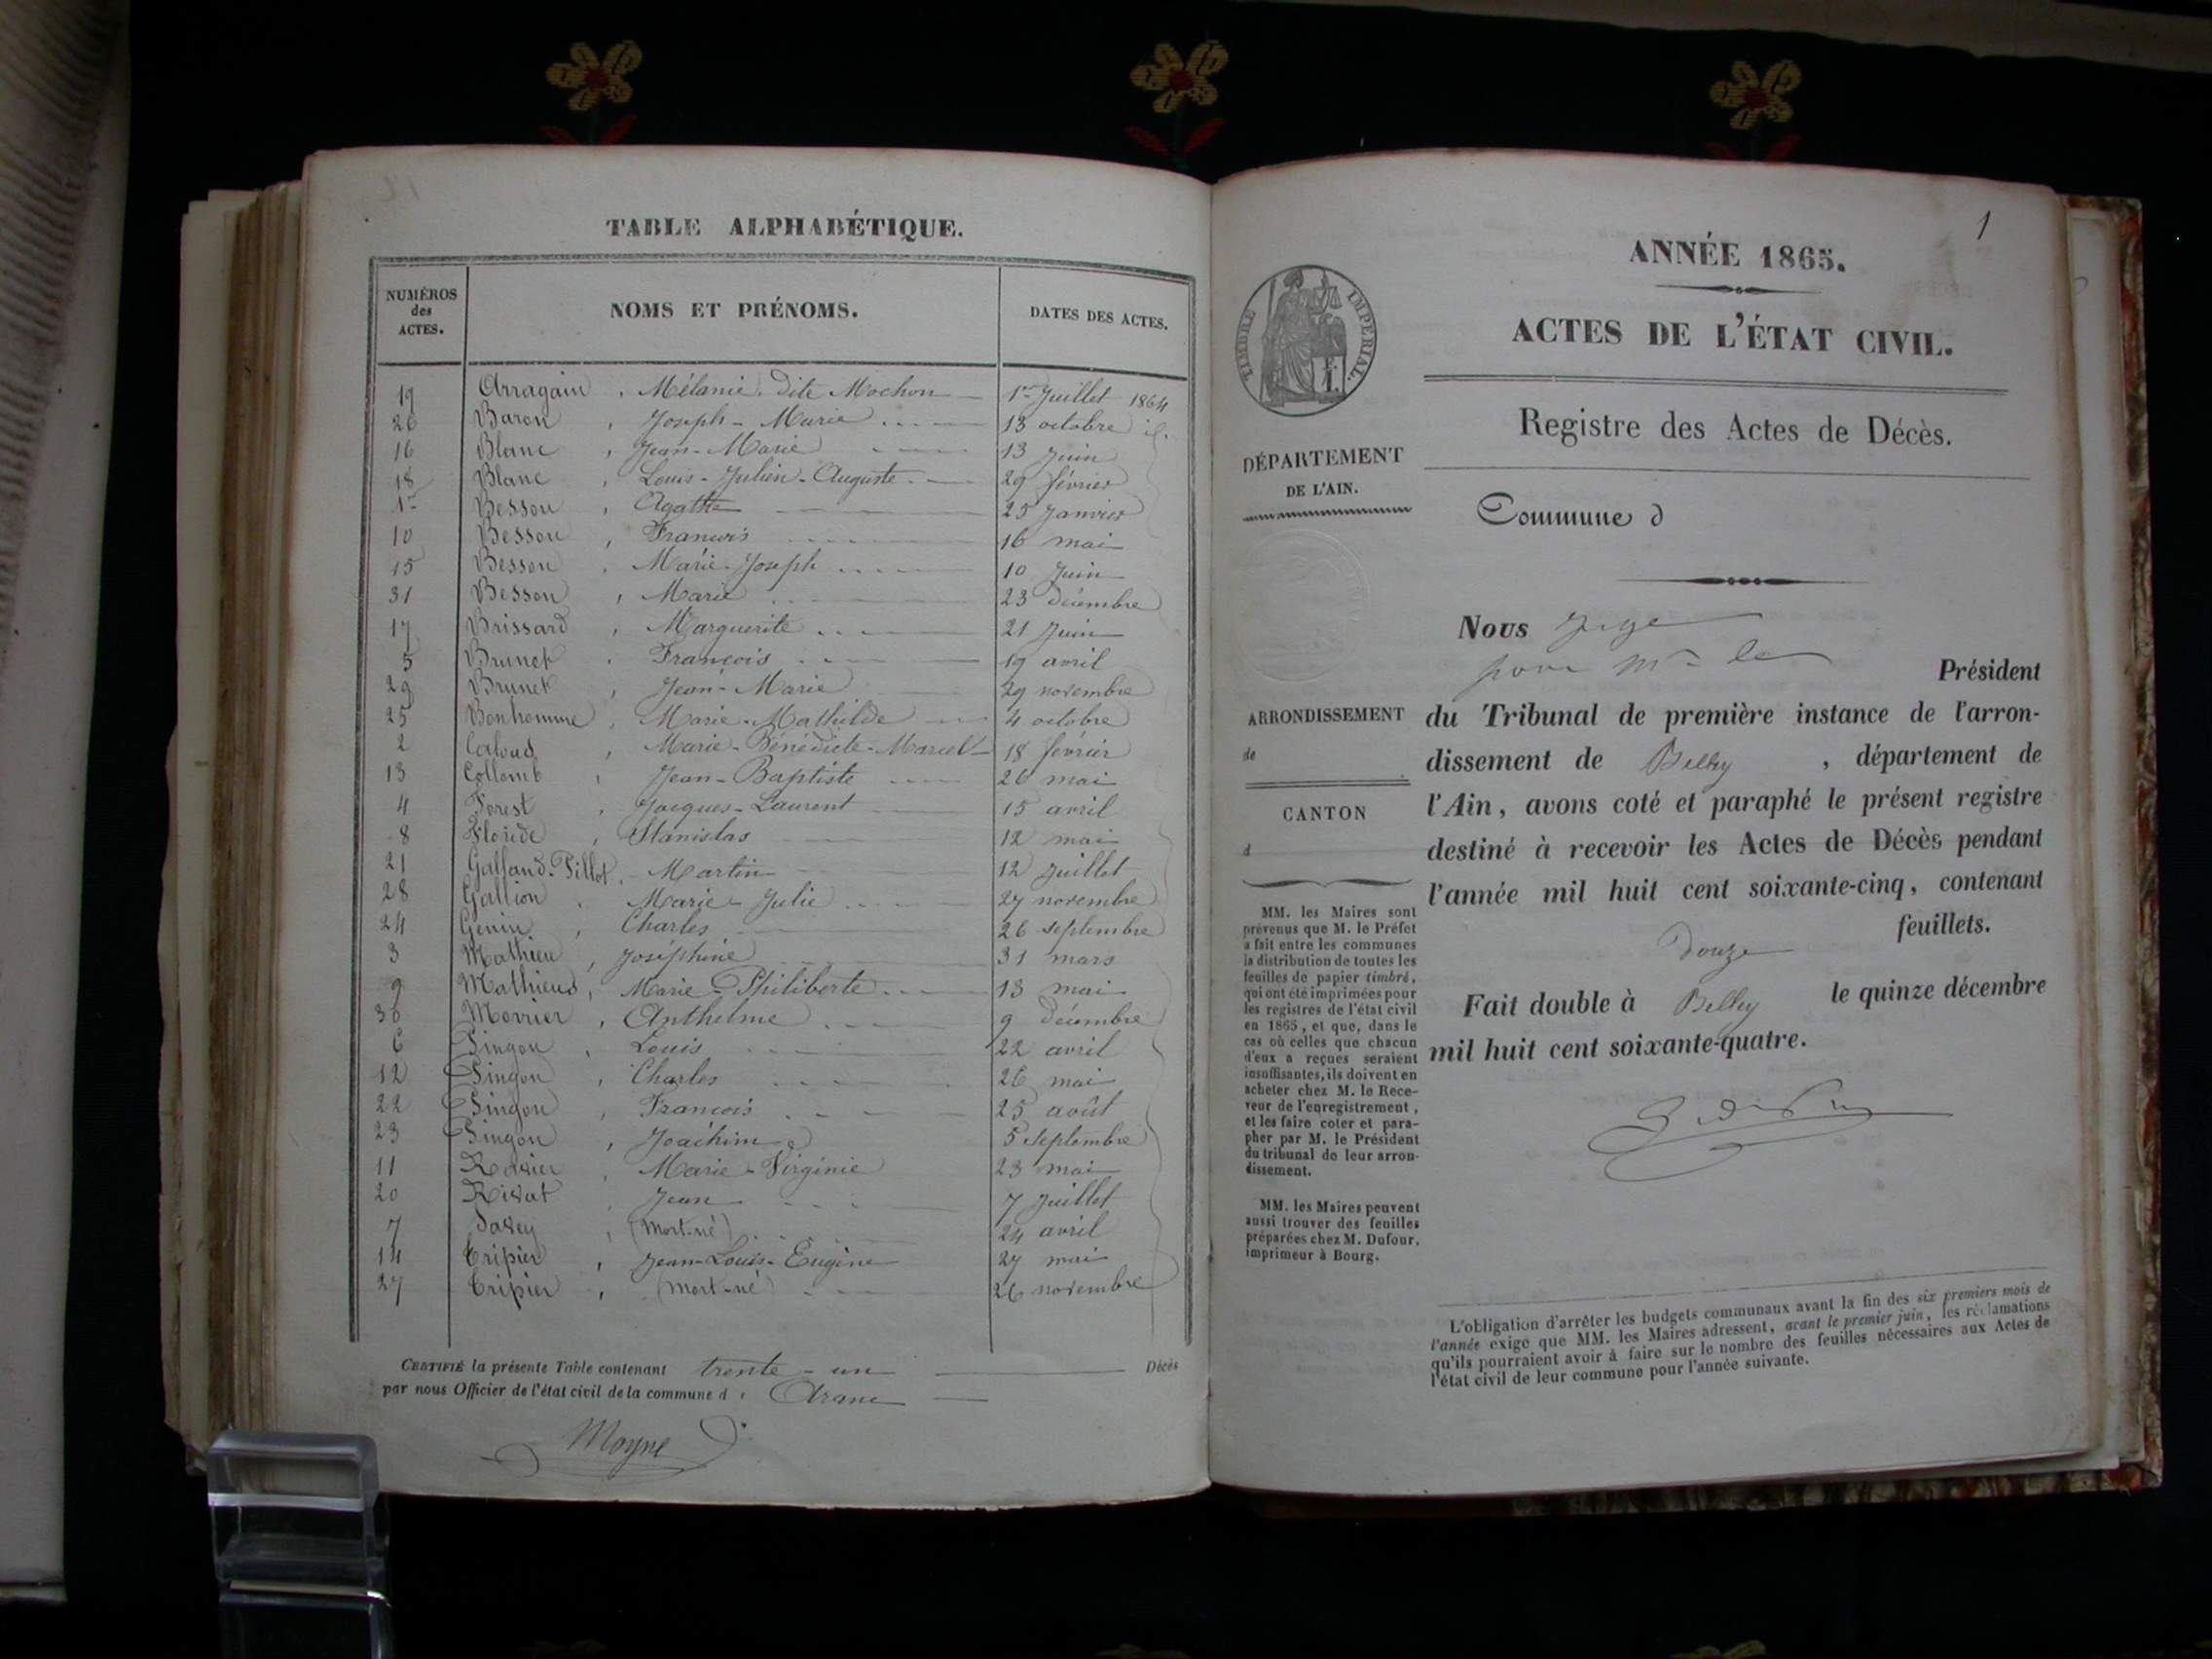 TABLE ALPHABÉTIQUE.
NUMÉROS
des
ACTES.
NOMS ET PRÉNOMS.
DATES DES ACTES.
19 Arragain, Mélanie, dite Mochon 1er Juillet 1864
26 Baron, Joseph-Marie 13 octobre id.
16 Blanc, Jean-Marie 13 Juin
18 Blanc, Louis-Julien-Auguste 29 février
1er Besson, Agathe 25 Janvier
10 Besson, Francois 16 mai
15 Besson, Marie-Joseph 10 Juin
31 Besson, Marie 23 décembre
17 Brissard, Marguerite 21 Juin
5 Brunet, François 19 avril
29 Brunet, Jean-Marie 29 novembre
25 Bonhomme, Marie-Mathilde 4 octobre
2 Caloud, Marie-Bénédicte 18 février
13 Collomb, Jean-Baptiste 26 mai
4 Forest, Jacques-Laurent 15 avril
8 Floride, Stanislas 12 mai
21 Galland-Pillot, Martin 12 Juillet
28 Gallion, Marie-Julie 27 novembre
24 Genin, Charles 26 septembre
3 Mathieu, Joséphine 31 mars
9 Mathieud, Marie-Philiberte 13 mai
30 Morrier, Anthelme 9 décembre
6 Pingon, Louis 22 avril
12 Pingon, Charles 26 mai
22 Pingon, Francois 25 août
23 Pingon, Joachim 5 septembre
11 Marie-Virginie 23 mai
20 Rivat, Jean 7 Juillet
7 Savey, (Mort-né) 24 avril
14 Tripier, Jean-Louis-Eugène 27 mai
27 Tripier, (Mort-né) 26 novembre
CERTIFIÉ la présente Table contenant trente-un Décès
par nous Officier de l'état civil de la commune d' Aranc
Moyne
1
ANNÉE 1865.
ACTES DE L'ÉTAT CIVIL.
Registre des Actes de Décès.
TIMBRE IMPÉRIAL.
DÉPARTEMENT
DE L'AIN.
Commune d
ARRONDISSEMENT
de
CANTON
d
MM. les Maires sont
prévenus que M. le Préfet
a fait entre les communes
la distribution de toutes les
feuilles de papier timbré,
qui ont été imprimées pour
les registres de l'état civil
en 1865, et que, dans le
cas où celles que chacun
d'eux a reçues seraient
insuffisantes, ils doivent en
acheter chez M. le Rece-
veur de l'enregistrement,
et les faire coter et para-
pher par M. le Président
du tribunal de leur arron-
dissement.
MM. les Maires peuvent
aussi trouver des feuilles
préparées chez M. Dufour,
imprimeur à Bourg.
Nous Juge
pour Mr le Président
du Tribunal de première instance de l'arron-
dissement de Belley, département de
l'Ain, avons coté et paraphé le présent registre
destiné à recevoir les Actes de Décès pendant
l'année mil huit cent soixante-cinq, contenant
Douze feuillets.
Fait double à Belley le quinze décembre
mil huit cent soixante-quatre.
L'obligation d'arrêter les budgets communaux avant la fin des six premiers mois de
l'année exige que MM. les Maires adressent, avant le premier juin, les réclamations
qu'ils pourraient avoir à faire sur le nombre des feuilles nécessaires aux Actes de
l'état civil de leur commune pour l'année suivante.